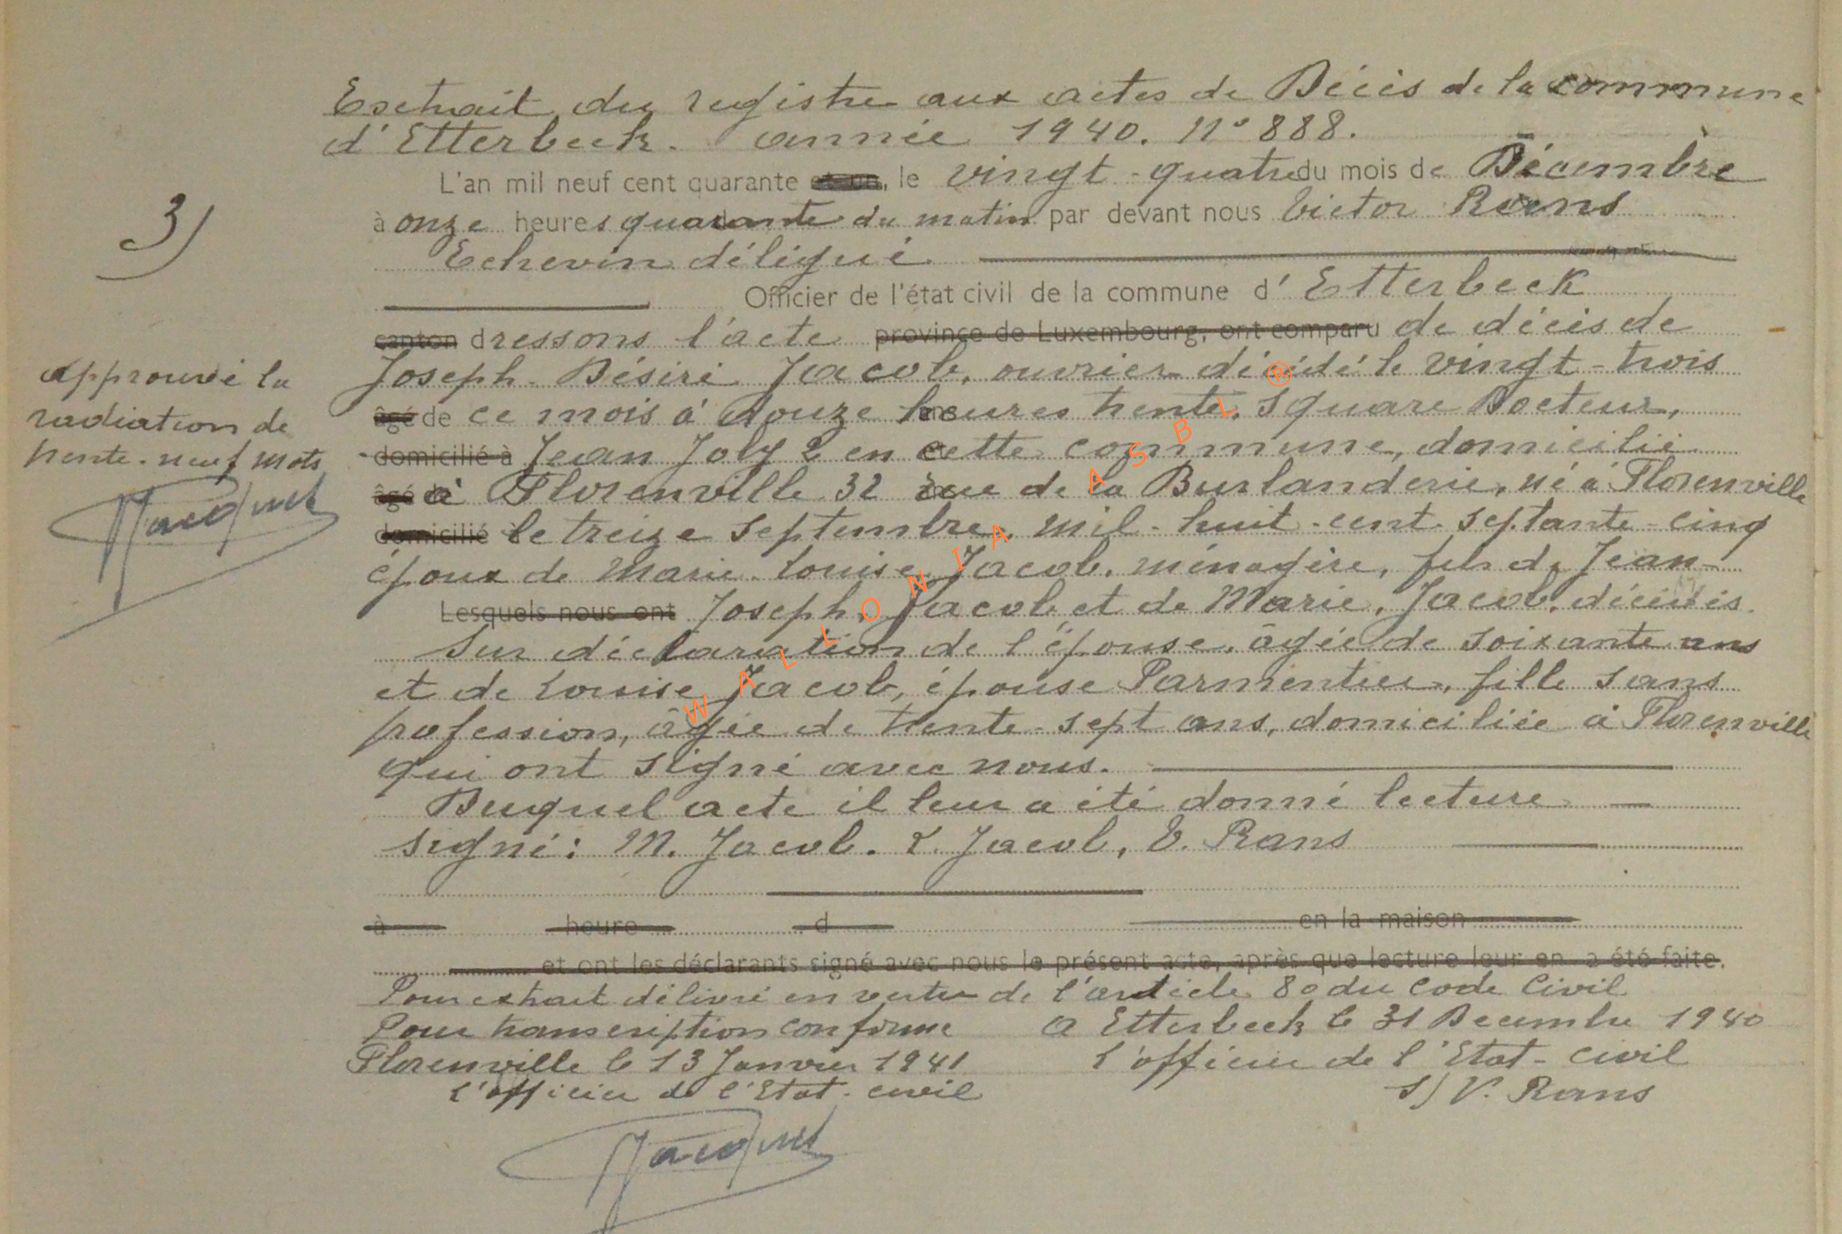 Extrait du registre aux actes de Décès de la commune
d'Etterbeek. année 1940. N° 888.
L'an mil neuf cent quarante et un, le vingt-quatre du mois de Décembre
à onze heures quarante du matin par devant nous Victor Rans
Echevin délégué
Officier de l'état civil de la commune d'Etterbeek
canton dressons l'acte province de Luxembourg, ont comparu de décès de
Joseph Désiré Jacob, ouvrier décédé le vingt-trois
âgé de ce mois à douze heures trente, square Docteur,
domicilié à Jean Joly 2 en cette commune, domicilié
âgé de à Florenville 32 rue de la Burlanderie, né à Florenville
domicilié le treize septembre mil-huit-cent-septante-cinq
époux de Marie Louise Jacob, ménagère, fils de Jean-
Lesquels nous ont Joseph, Jacob et de Marie, Jacob, décédés.
Sur déclaration de l'épouse, âgée de soixante ans
et de Louise Jacob, épouse Parmentier, fille sans
profession, âgée de trente-sept ans, domiciliée à Florenville
qui ont signé avec nous.
Duquel acte il leur a été donné lecture
signé: M. Jacob. L. Jacob, V. Rans
à heure d en la maison
et ont les déclarants signé avec nous le présent acte, après que lecture leur en a été faite.
Pour extrait délivré en vertu de l'article 80 du Code Civil
Pour transcription conforme a Etterbeek le 31 Decembre 1940
Florenville le 13 Janvier 1941 L'officier de l'Etat-civil
L'officier de l'Etat-civil S/ V. Rans
Jacques
3)
Approuvé la
radiation de
trente-neuf mots
Jacques
WALLONIA ASBL ®